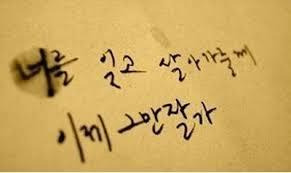 너를 잊고 살아가볼께
이제 그만 잘가